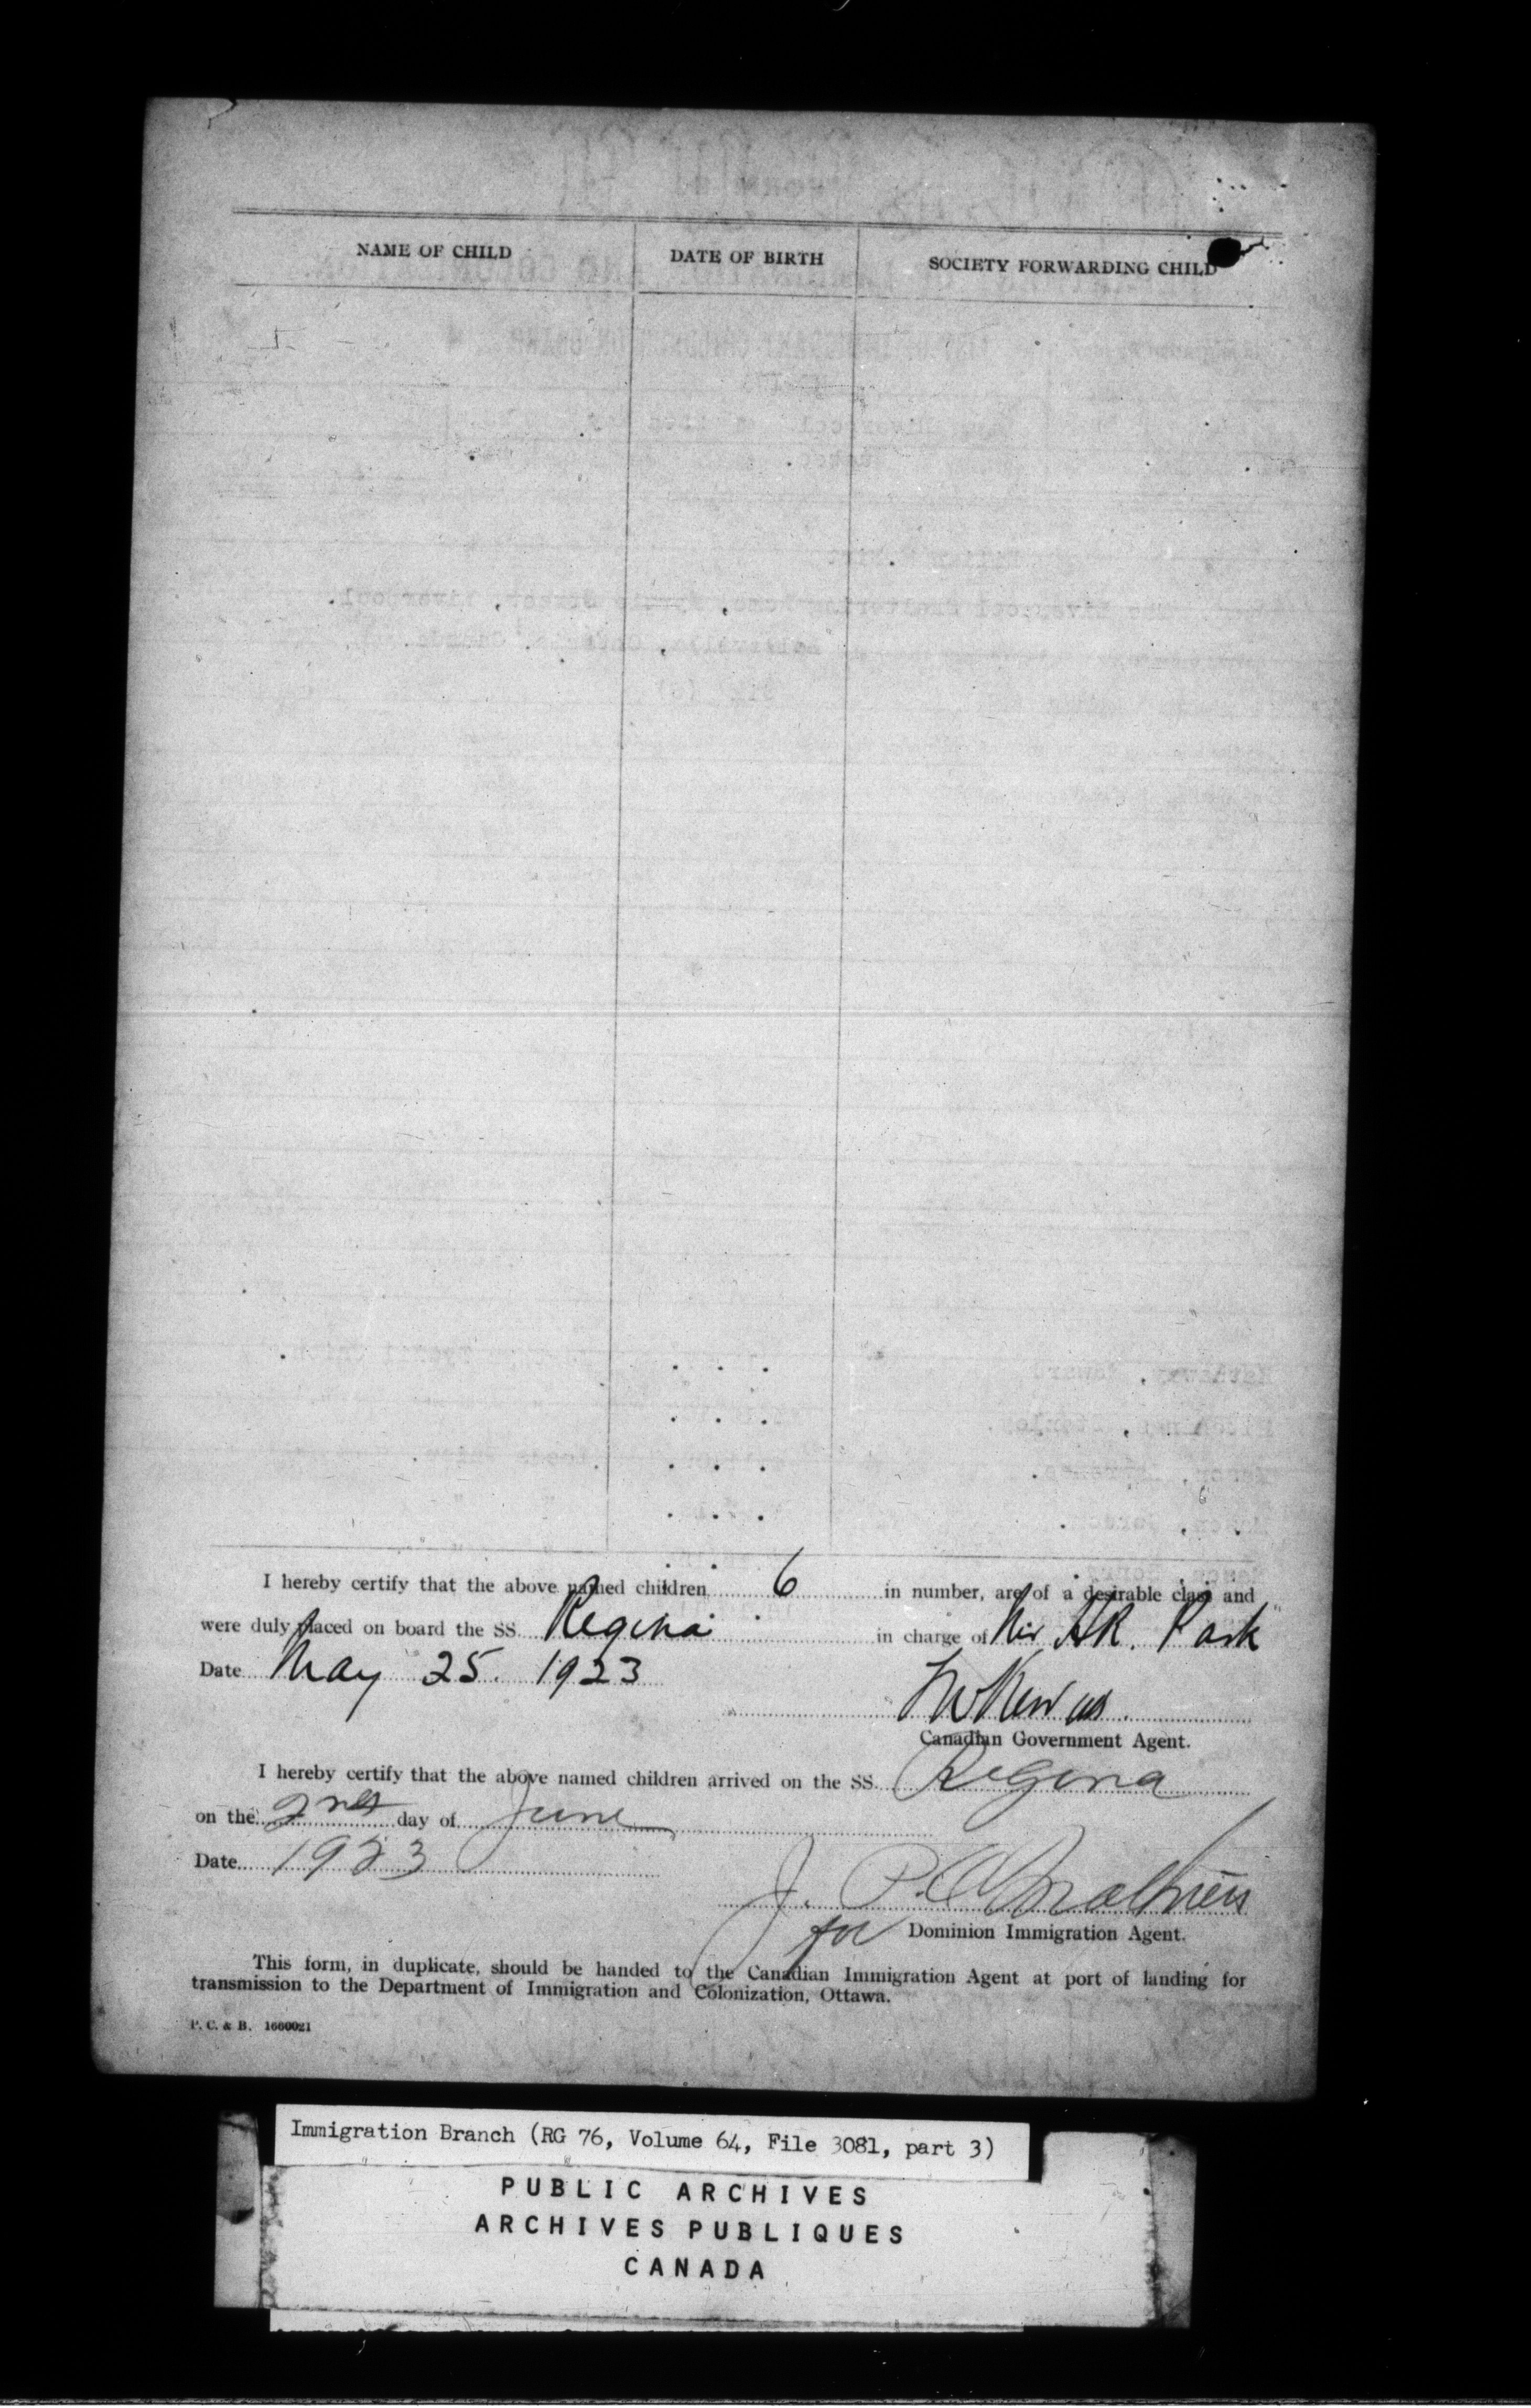 NAME OF CHILD DATE OF BIRTH SOCIETY FORWARDING CHILD
I hereby certify that the above named children 6 in number, are of a desirable class and
were duly placed on board the SS. Regina in charge of H.R. Park
Date May 25. 1923
Canadian Government Agent.
I hereby certify that the above named children arrived on the SS. Regina
on the 2nd day of June
Date 1923
J. P.
for Dominion Immigration Agent.
This form, in duplicate, should be handed to the Canadian Immigration Agent at port of landing for
transmission to the Department of Immigration and Colonization, Ottawa.
P. C. & B. 1660021
Immigration Branch (RG 76, Volume 64, File 3081, part 3)
PUBLIC ARCHIVES
ARCHIVES PUBLIQUES
CANADA